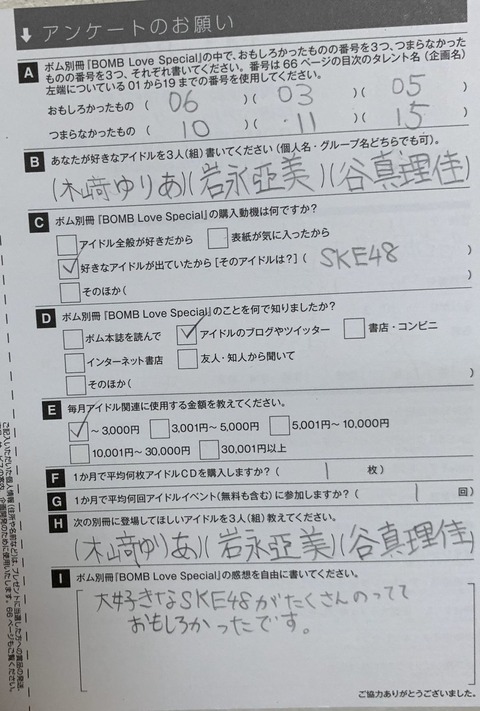 ↓ アンケートのお願い
A ボム別冊『BOMB Love Special』の中で、おもしろかったものの番号を3つ、つまらなかった
ものの番号を3つ、それぞれ書いてください。番号は66ページの目次のタレント名(企画名)
左端についている01から19までの番号を使用してください。
おもしろかったもの ( 06 )( 03 )( 05 )
つまらなかったもの ( 10 )( 11 )( 15 )
B あなたが好きなアイドルを3人(組)書いてください(個人名・グループ名どちらでも可)。
(木﨑ゆりあ)(岩永亞美)(谷真理佳)
C ボム別冊『BOMB Love Special』の購入動機は何ですか?
アイドル全般が好きだから 表紙が気に入ったから
✓ 好きなアイドルが出ていたから[そのアイドルは?]( SKE48 )
そのほか( )
D ボム別冊『BOMB Love Special』のことを何で知りましたか?
ボム本誌を読んで ✓ アイドルのブログやツイッター 書店・コンビニ
インターネット書店 友人・知人から聞いて
そのほか( )
E 毎月アイドル関連に使用する金額を教えてください。
✓ ~3,000円 3,001円~5,000円 5,001円~10,000円
10,001円~30,000円 30,001円以上
F 1か月で平均何枚アイドルCDを購入しますか?( 1 枚)
G 1か月で平均何回アイドルイベント(無料も含む)に参加しますか?( 1 回)
H 次の別冊に登場してほしいアイドルを3人(組)教えてください。
(木﨑ゆりあ)(岩永亞美)(谷真理佳)
I ボム別冊『BOMB Love Special』の感想を自由に書いてください。
大好きなSKE48がたくさんのってて
おもしろかったです。
ご協力ありがとうございました。